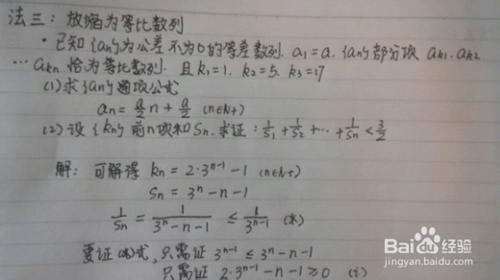 法三：放缩为等比数列
·已知{an}为公差不为0的等差数列. a₁=a. {an}部分项 ak₁. ak₂
… akn 恰为等比数列. 且 k₁=1. k₂=5. k₃=17
(1)求{an}通项公式
an = a/2 n + a/2 (n∈N+)
(2)设{kn}前n项和Sn. 求证: 1/S₁ + 1/S₂ + … + 1/Sn < 3/2
解: 可解得 kn = 2·3ⁿ⁻¹ - 1 (n∈N+)
Sn = 3ⁿ - n - 1
1/Sn = 1/(3ⁿ - n - 1) ≤ 1/3ⁿ⁻¹ (*)
要证(*)式, 只需证 3ⁿ⁻¹ ≤ 3ⁿ - n - 1
只需证 2·3ⁿ⁻¹ - n - 1 ≥ 0
Baidu经验
jingyan.baidu.com